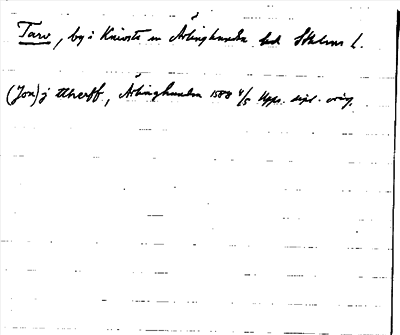 Tarv, by i Knivsta sn Ärlinghundra hd Sthlms l.
(Jon) j tthrff, Ärlinghundra 1588 4/5 Upps. dipl. orig.